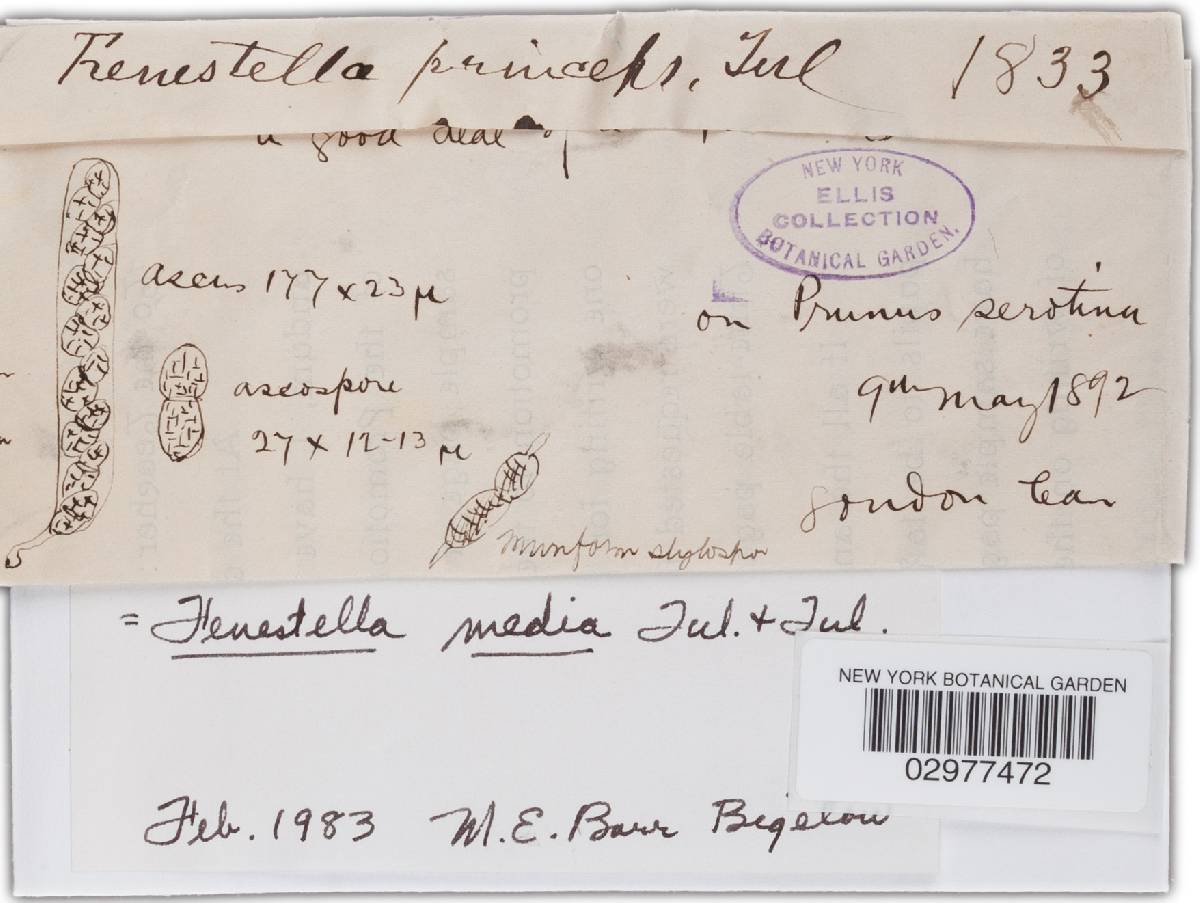 Fenestella princeps, Tul 1833
a good deal of
NEW YORK
ELLIS
COLLECTION
BOTANICAL GARDEN.
ascus 177 x 23 µ
on Prunus serotina
ascospore
9th May 1892
27 x 12-13 µ
London Can
Muriform stylospor
= Fenestella media Tul. + Tul.
NEW YORK BOTANICAL GARDEN
02977472
Feb. 1983 M. E. Barr Bigelow